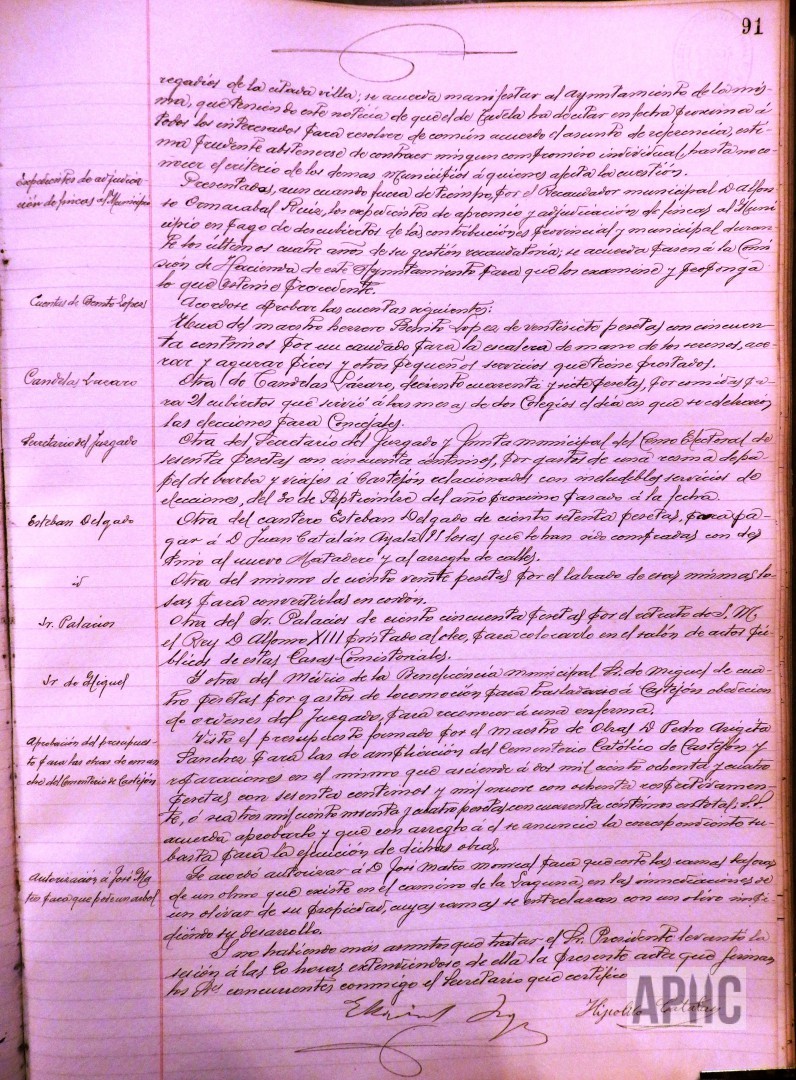 91
regadíos de la citada villa; se acuerda manifestar al Ayuntamiento de la mis-
ma, que teniendo este noticia de que el de Tudela ha de citar en fecha proxima á
todos los interesados para resolver de común acuerdo el asunto de referencia, esti-
ma prudente abstenerse de contraer ningun compromiso individual, hasta no co-
nocer el criterio de los demas Municipios á quienes afecta la cuestión.
Expedientes de adjudica-
ción de fincas al Municipio
Presentados, aun cuando fuera de tiempo, por el Recaudador municipal D. Alfon-
so Ormazabal Ruiz, los expedientes de apremio y adjudicación de fincas al Muni-
cipio en pago de descubiertos de las contribuciones provincial y municipal duran-
te los últimos cuatro años de su gestión recaudatoria; se acuerda pasen á la Comi-
sión de Hacienda de este Ayuntamiento para que los examine y proponga
lo que estime procedente.
Cuentas de Benito Lopez
Acordose aprobar las cuentas siguientes:
Una del maestro herrero Benito Lopez de veintisiete pesetas con cincuen-
ta centimos por un candado para la escalera de mano de los serenos, ace-
rar y aguzar picos y otros pequeños servicios que tiene prestados.
Candelas Lacaro
Otra de Candelas Lacaro, de ciento cuarenta y siete pesetas, por comidas pa-
ra 21 cubiertos que sirvió á las mesas de dos Colegios el día en que se celebraron
las elecciones para Concejales.
Secretario del Juzgado
Otra del Secretario del Juzgado y Junta municipal del Censo Electoral de
sesenta pesetas con cincuenta céntimos, por gastos de una resma de pa-
pel de barba y viajes á Castejón relacionados con ineludibles servicios de
elecciones, del 30 de Septiembre del año proximo pasado á la fecha.
Esteban Delgado
Otra del cantero Esteban Delgado de ciento setenta pesetas, para pa-
gar á D. Juan Catalán Ayala 91 losas que le han sido compradas con des-
tino al nuevo Matadero y al arreglo de calles.
id
Otra del mismo de ciento veinte pesetas por el labrado de esas mismas lo-
sas para convertirlas en cordón.
Sr. Palacios
Otra del Sr. Palacios de ciento cincuenta pesetas por el retrato de S. M.
el Rey D. Alfonso XIII pintado al oleo, para colocarlo en el salón de actos pú-
blicos de estas Casas-Consistoriales.
Sr. de Miguel
Y otra del Médico de la Beneficencia municipal Sr. de Miguel de cua-
tro pesetas por gastos de locomoción para trasladarse á Castejón obedecien-
do ordenes del Juzgado, para reconocer á una enferma.
Aprobación del presupues-
to para las obras de ensan-
che del Cementerio de Castejón
Visto el presupuesto formado por el maestro de Obras D. Pedro Arigita
Sanchez para las de ampliación del Cementerio Católico de Castejón y
reparaciones en el mismo que asciende á dos mil ciento ochenta y cuatro
pesetas con sesenta centimos y mil nueve con ochenta respectivamen-
te, ó sea tres mil ciento noventa y cuatro pesetas con cuarenta céntimos en total; se
acuerda aprobarlo y que con arreglo á él se anuncie la correspondiente su-
basta para la ejecución de dichas obras.
Autorización á José Ma-
teo para que pode un arbol
Se acordó autorizar á D. José Mateo Monreal para que corte las ramas bajeras
de un olmo que existe en el camino de la Laguna, en las inmediaciones de
un olivar de su propiedad, cuyas ramas se entrelazan con un olivo impi-
diendo su desarrollo.
Y no habiendo más asuntos que tratar el Sr. Presidente levantó la
sesión á las 20 horas extendiendose de ella la presente acta que firman
los Sres. concurrentes conmigo el Secretario que certifico
Hipolito
APHC